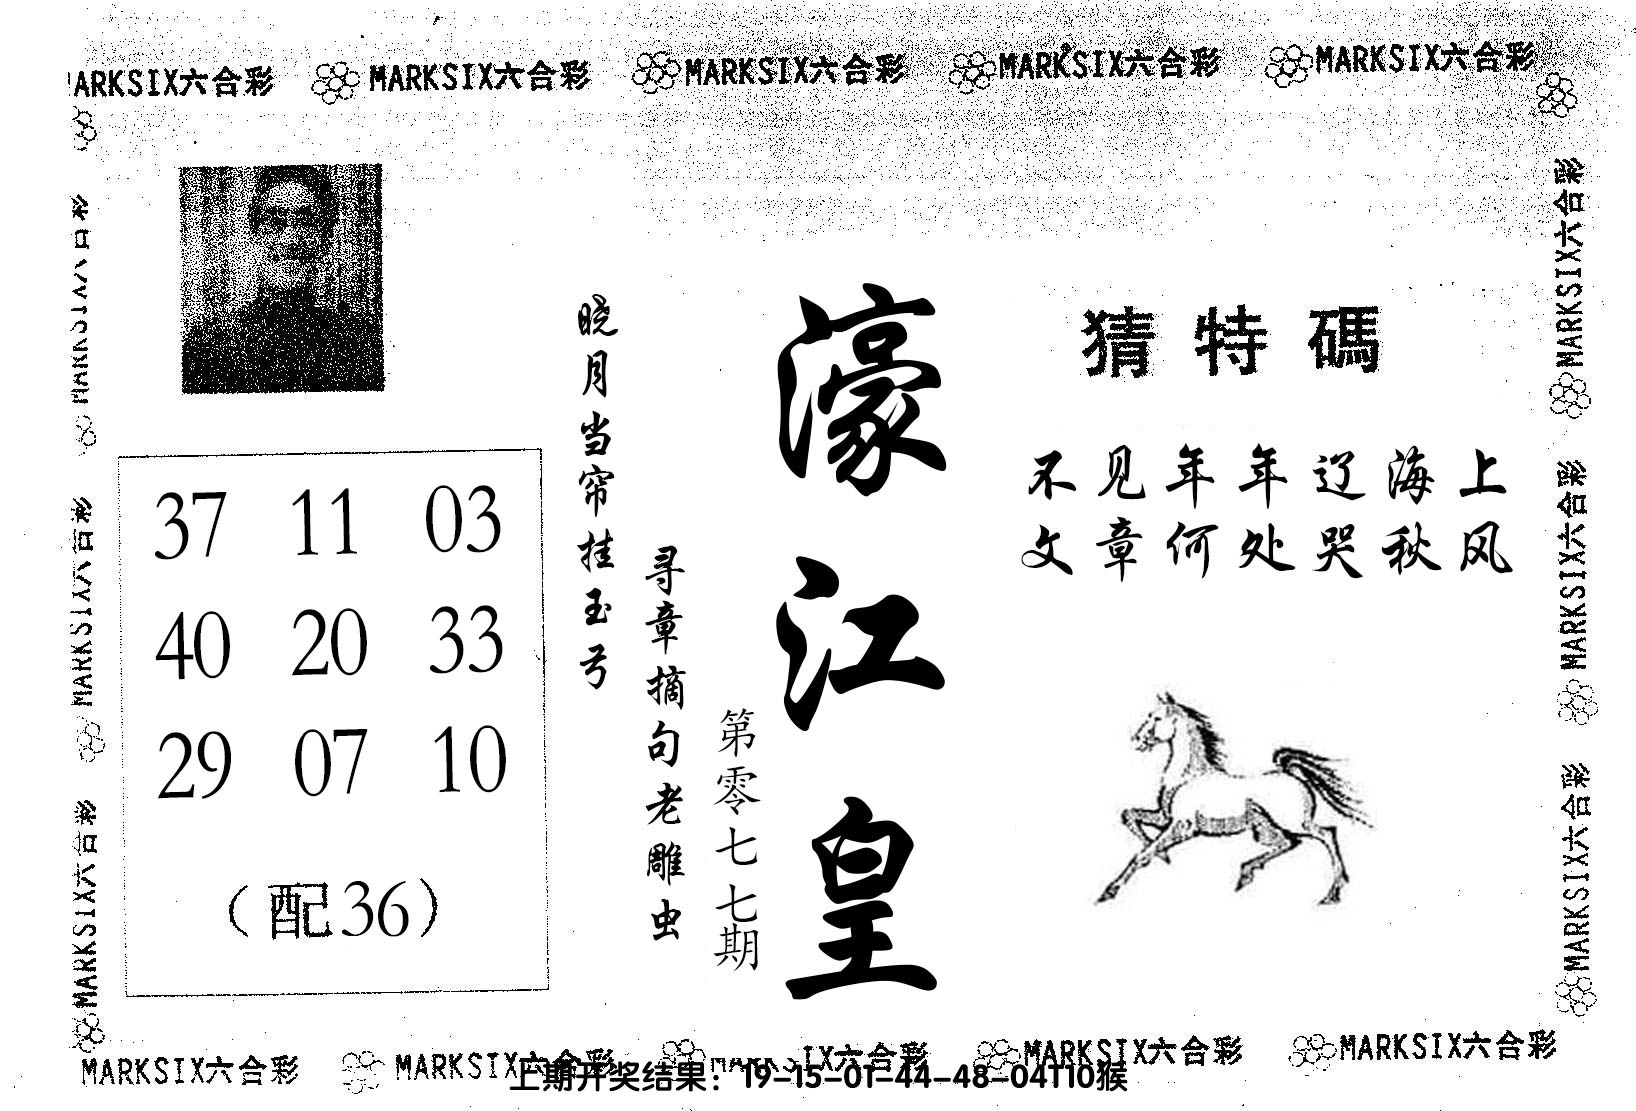 MARKSIX六合彩 MARKSIX六合彩 MARKSIX六合彩 MARKSIX六合彩 MARKSIX六合彩
MARKSIX六合彩
MARKSIX六合彩
MARKSIX六合彩
猜特碼
不见年年辽海上
文章何处哭秋风
濠江皇
第零七七期
寻章摘句老雕虫
晓月当帘挂玉弓
37 11 03
40 20 33
29 07 10
（配36）
MARKSIX六合彩
MARKSIX六合彩
MARKSIX六合彩
MARKSIX六合彩 MARKSIX六合彩 MARKSIX六合彩 MARKSIX六合彩 MARKSIX六合彩
上期开奖结果：19-15-01-44-48-04T10猴